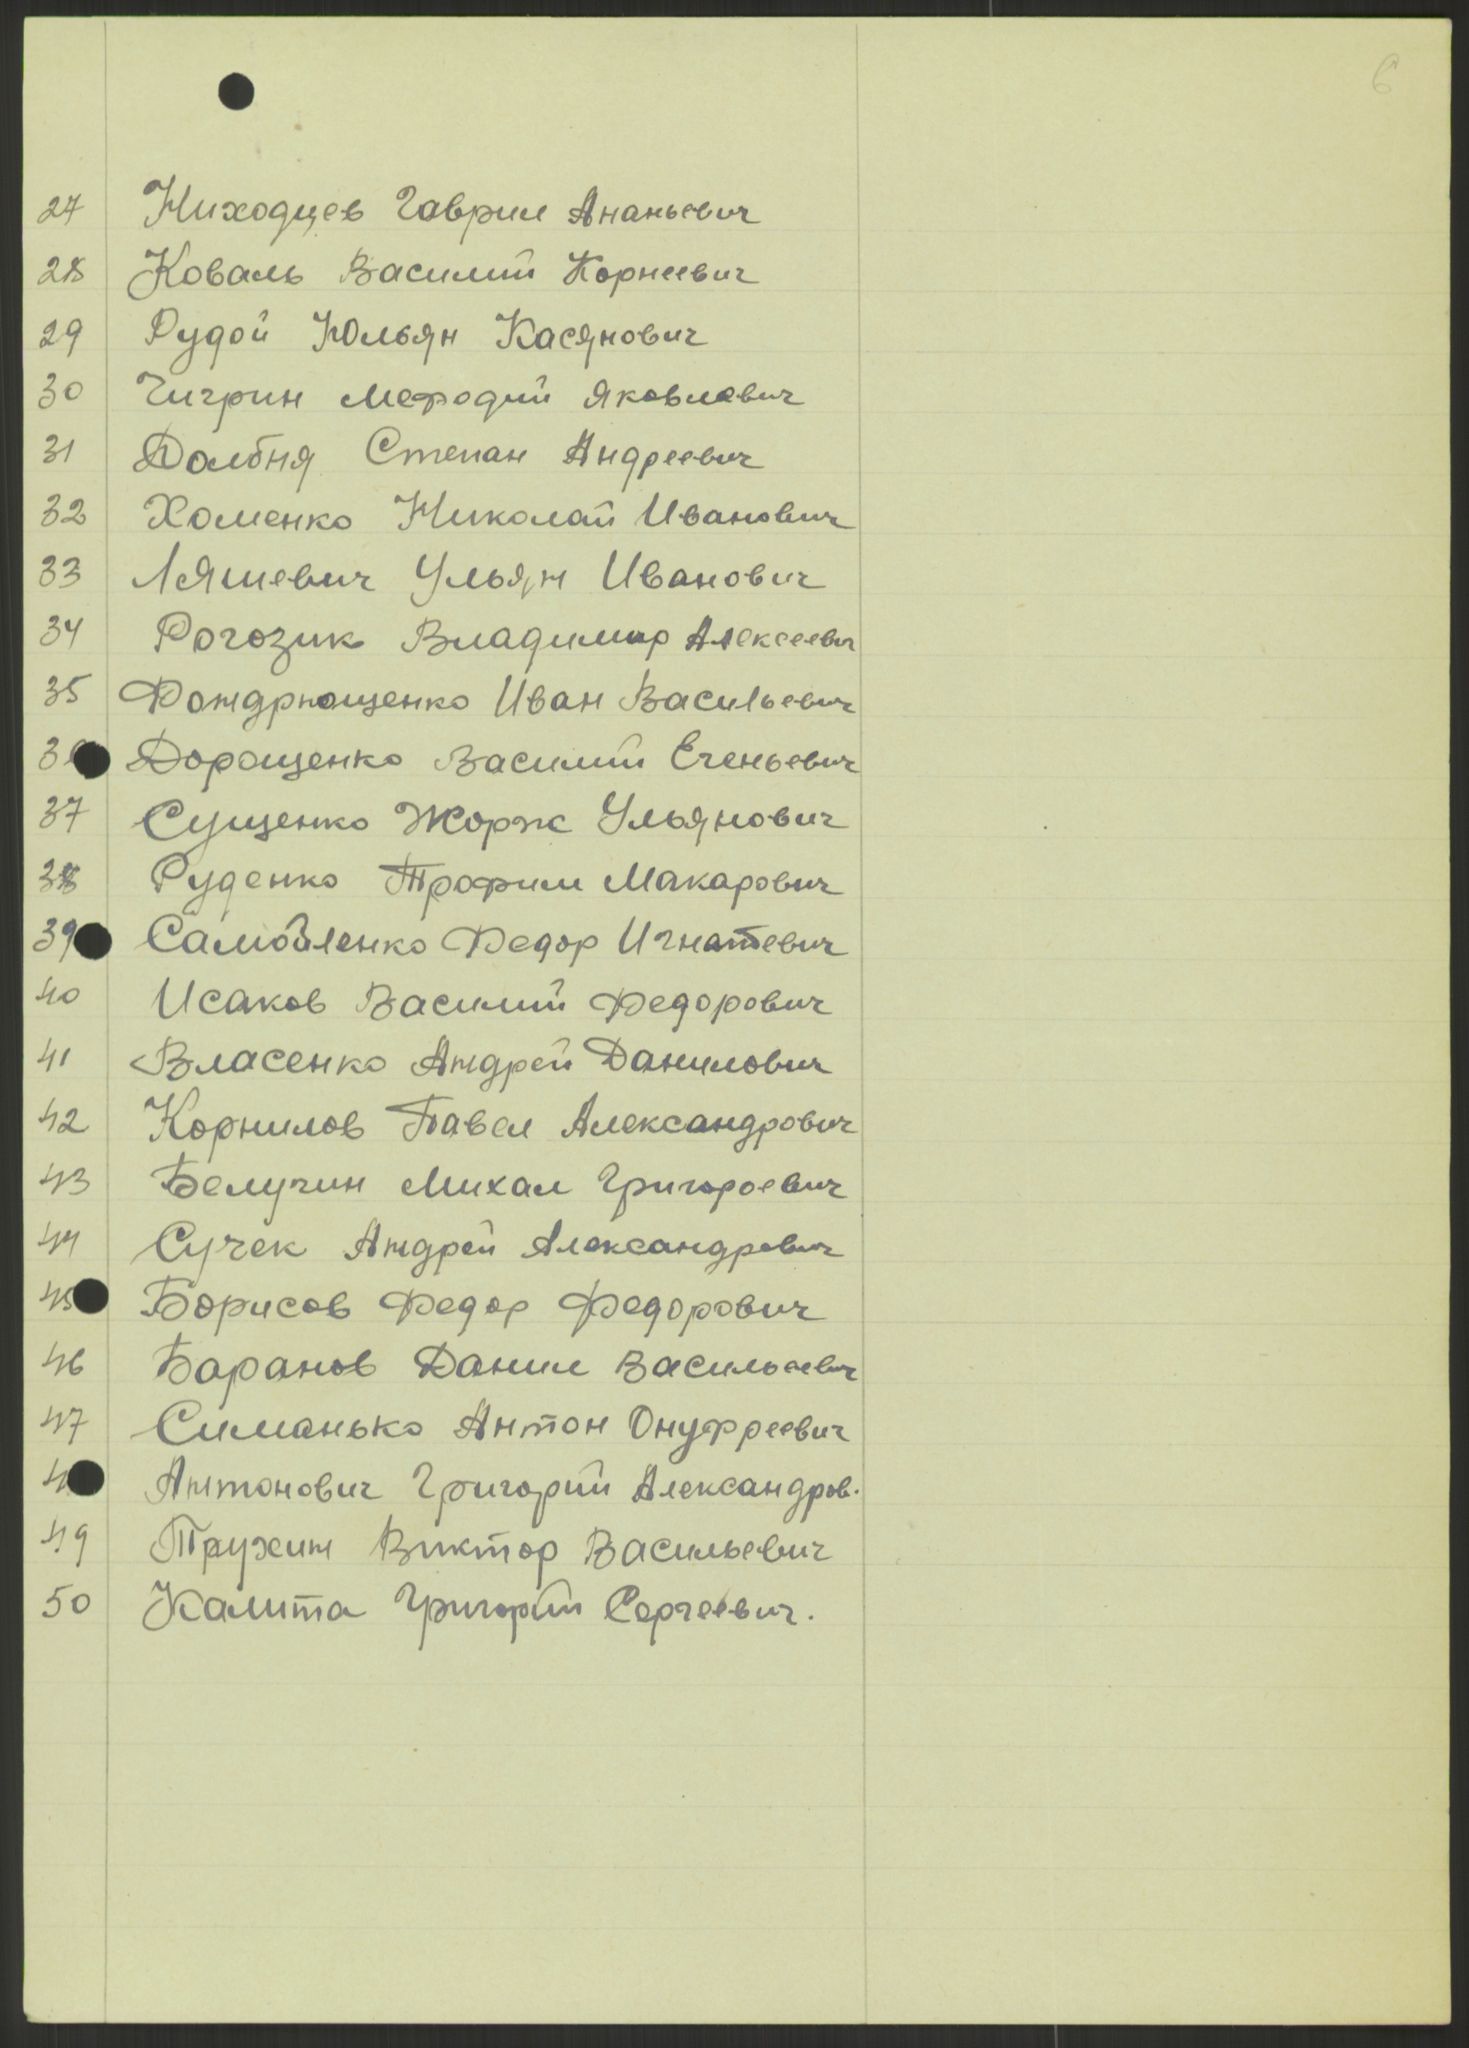 6
27 Ниходцев Гаврил Ананьевич
28 Коваль Василий Корнеевич
29 Рудой Юльян Касянович
30 Чигрин Мефодий Яковлевич
31 Долбня Степан Андреевич
32 Хоменко Николай Иванович
33 Ляшевич Ульян Иванович
34 Рогозик Владимир Алексеевич
35 Фондрющенко Иван Васильевич
36 Дорощенко Василий Егеньевич
37 Сущенко Жорж Ульянович
38 Руденко Трофим Макарович
39 Самойленко Федор Игнатевич
40 Исаков Василий Федорович
41 Власенко Андрей Данилович
42 Корнилов Павел Александрович
43 Белугин Михал Григороевич
44 Сучек Андрей Александрович
45 Борисов Федор Федорович
46 Баранов Данил Васильевич
47 Симанько Антон Онуфреевич
4 Антонович Григорий Александров.
49 Трухин Виктор Васильевич
50 Калита Григорий Сергеевич.